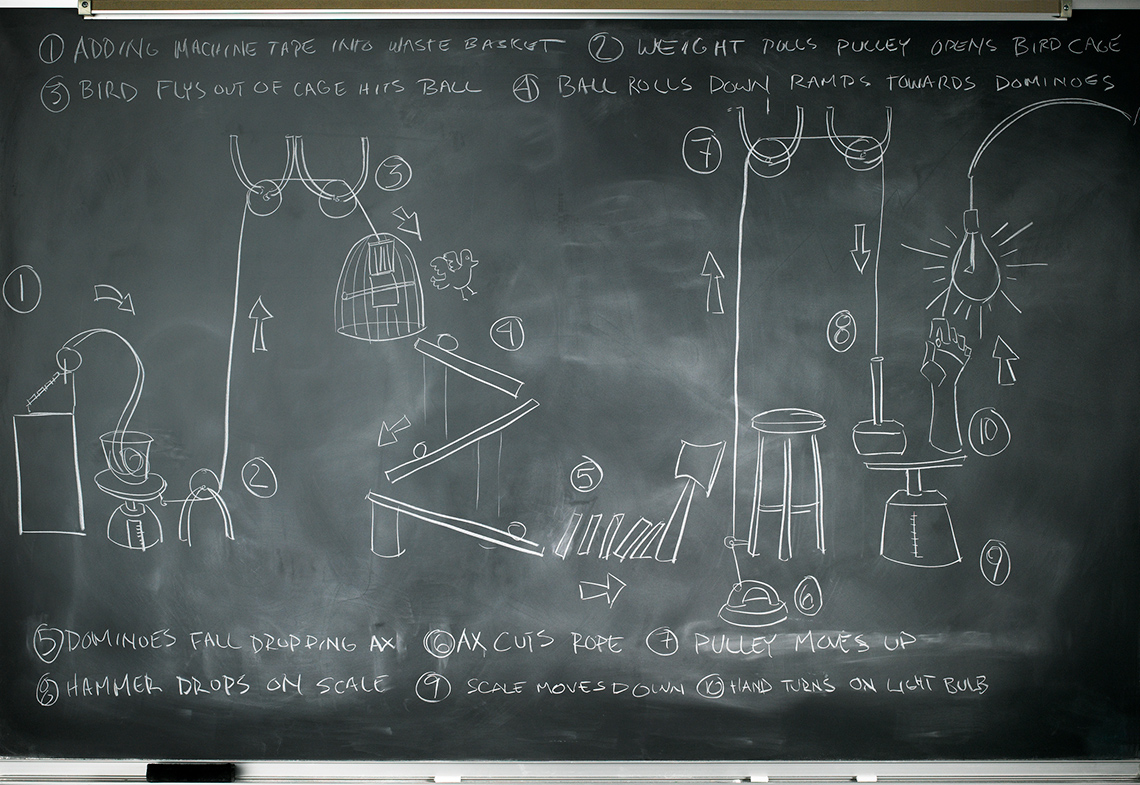 ① ADDING MACHINE TAPE INTO WASTE BASKET ② WEIGHT PULLS PULLEY OPENS BIRD CAGE
③ BIRD FLYS OUT OF CAGE HITS BALL ④ BALL ROLLS DOWN RAMPS TOWARDS DOMINOES
⑦
③
①
⑧
④
⑩
⑤
②
⑨
⑥
⑤ DOMINOES FALL DROPPING AX ⑥ AX CUTS ROPE ⑦ PULLEY MOVES UP
⑧ HAMMER DROPS ON SCALE ⑨ SCALE MOVES DOWN ⑩ HAND TURNS ON LIGHT BULB